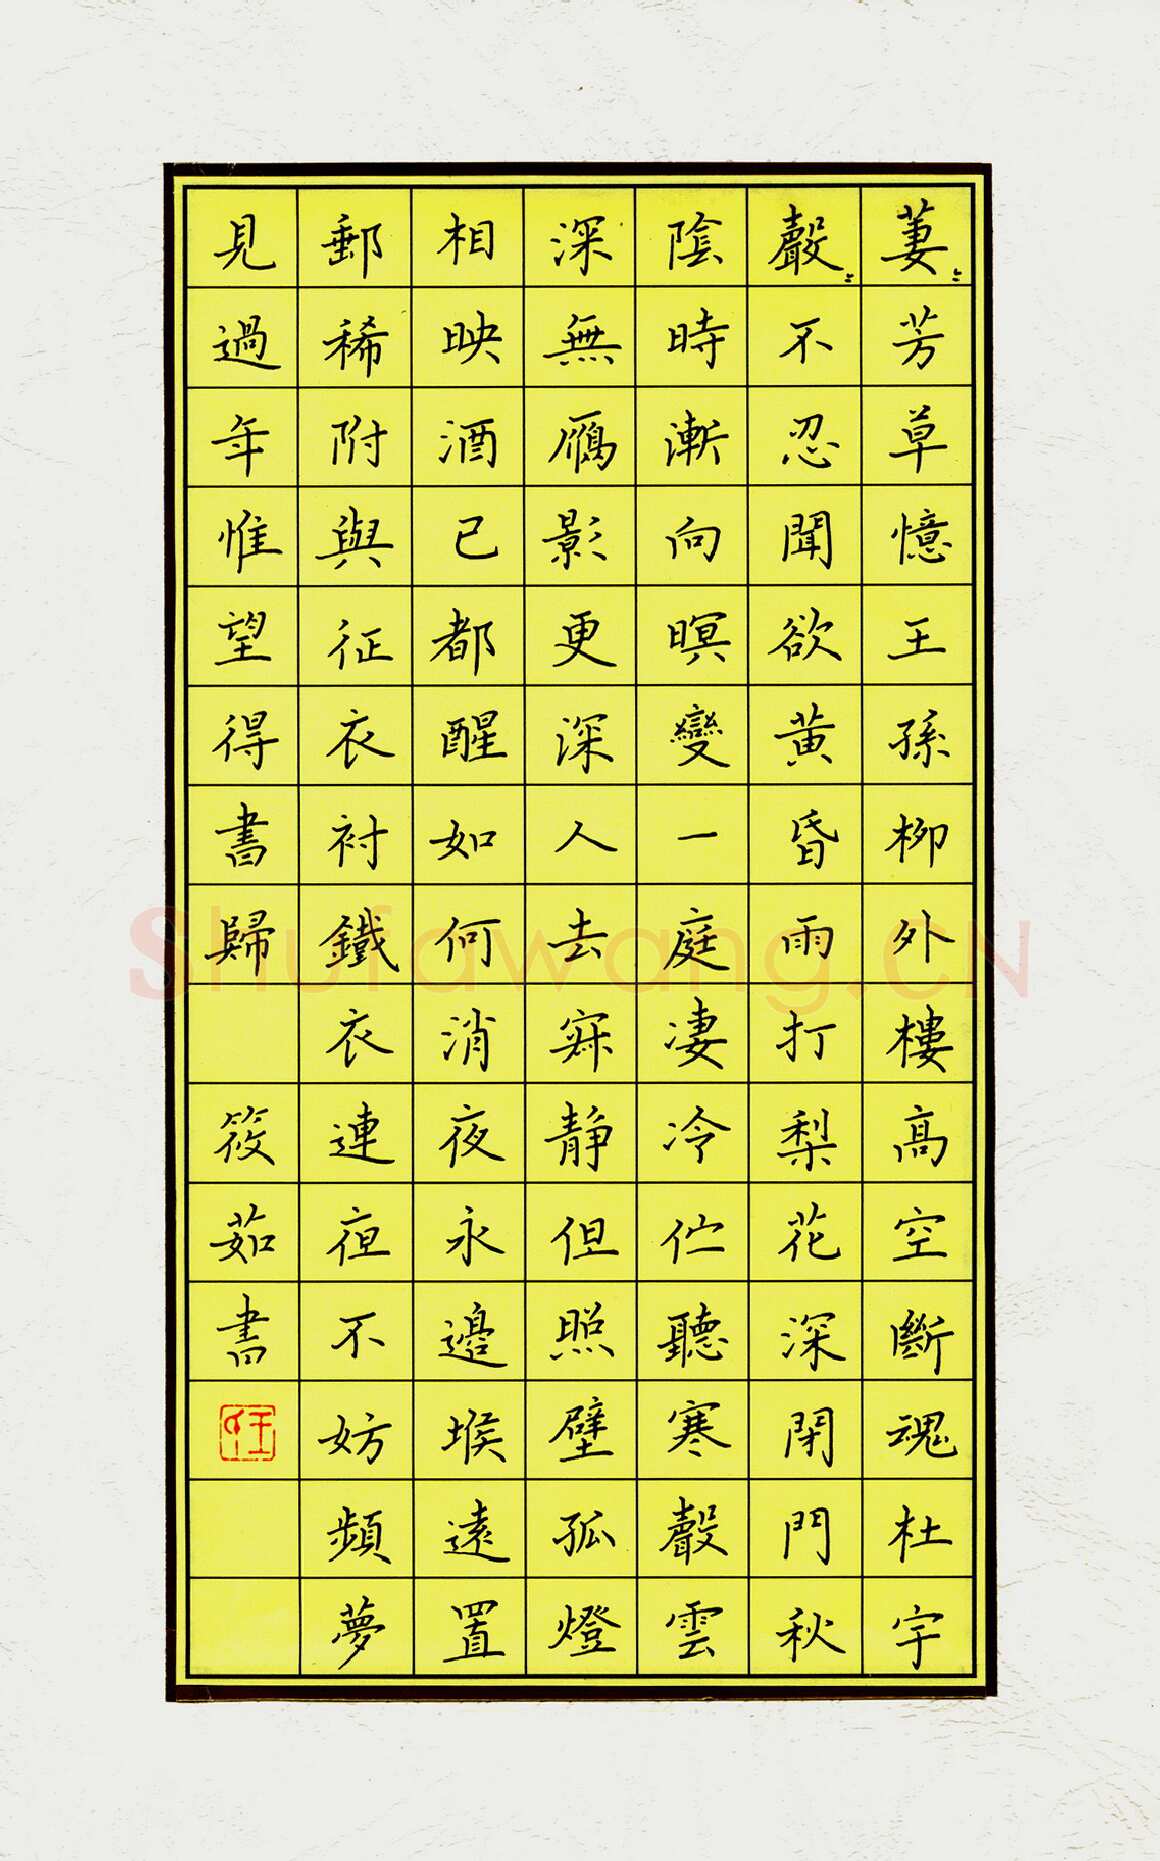 萋〻芳草憶王孫柳外樓高空斷魂杜宇
聲〻不忍聞欲黃昏雨打梨花深閉門秋
陰時漸向暝變一庭淒冷伫聽寒聲雲
深無鴈影更深人去寂静但照壁孤燈
相映酒已都醒如何消夜永邊堠遠置
郵稀附與征衣衬鐵衣連夜不妨頻夢
見過年惟望得書歸 筱茹書
任
Shufawang.CN